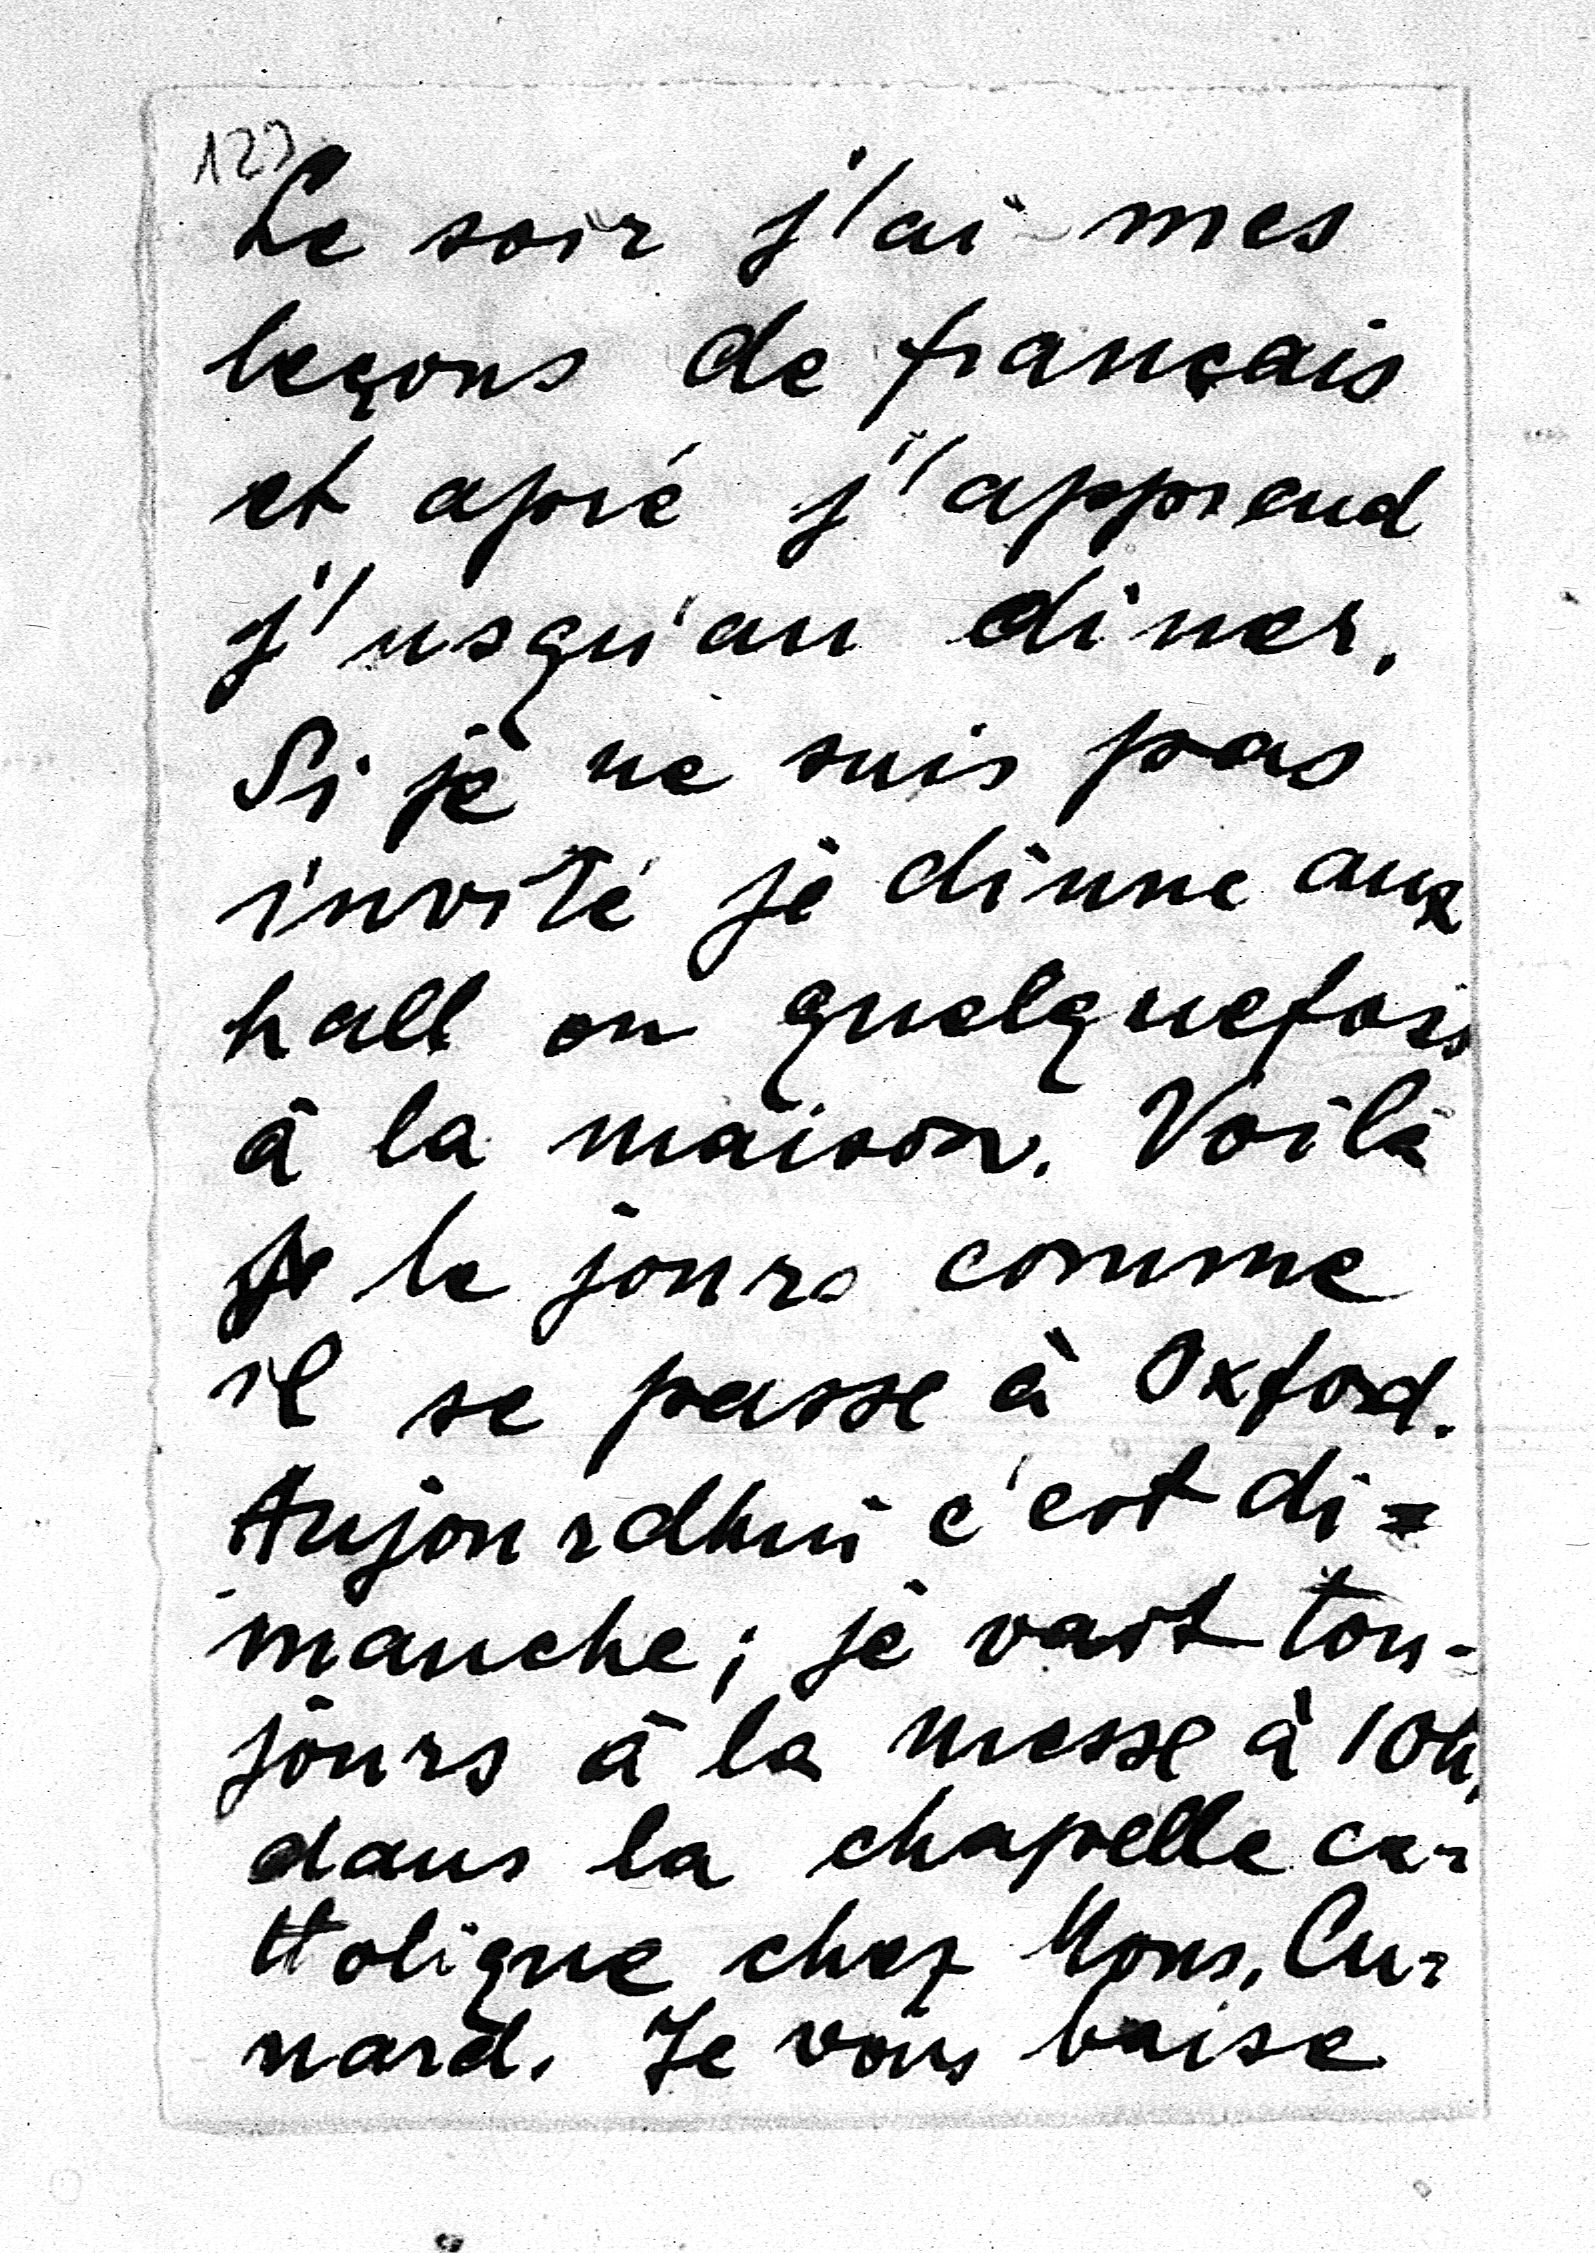 123
Le soir j'ai mes
leçons de français
et apré j'apprend
j'usqu'au diner.
Si je ne suis pas
invité je dinne aux
hall ou quelquefois
à la maison. Voilà
le jours comme
il se passe à Oxford.
Aujourdhui c'est di=
manche; je vait tou-
jours à la messe à 10h,
dans la chapelle ca-
ttolique chez Mons. Cu-
nard. Je vous baise